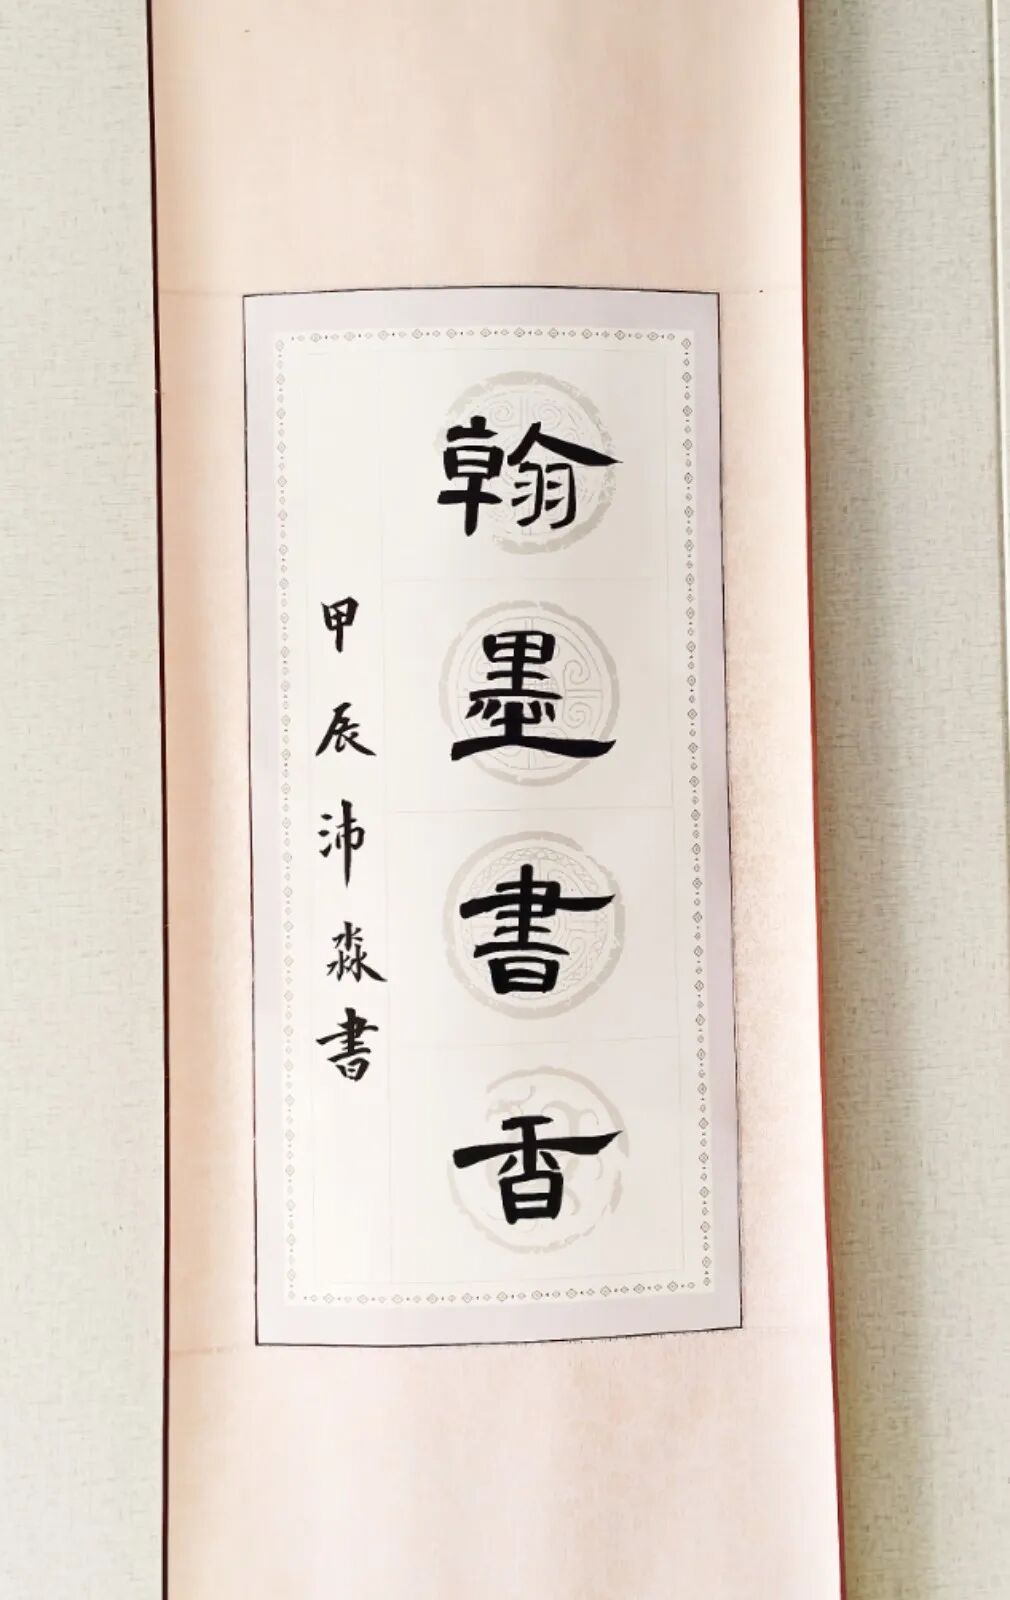 翰墨書香
甲辰沛淼書